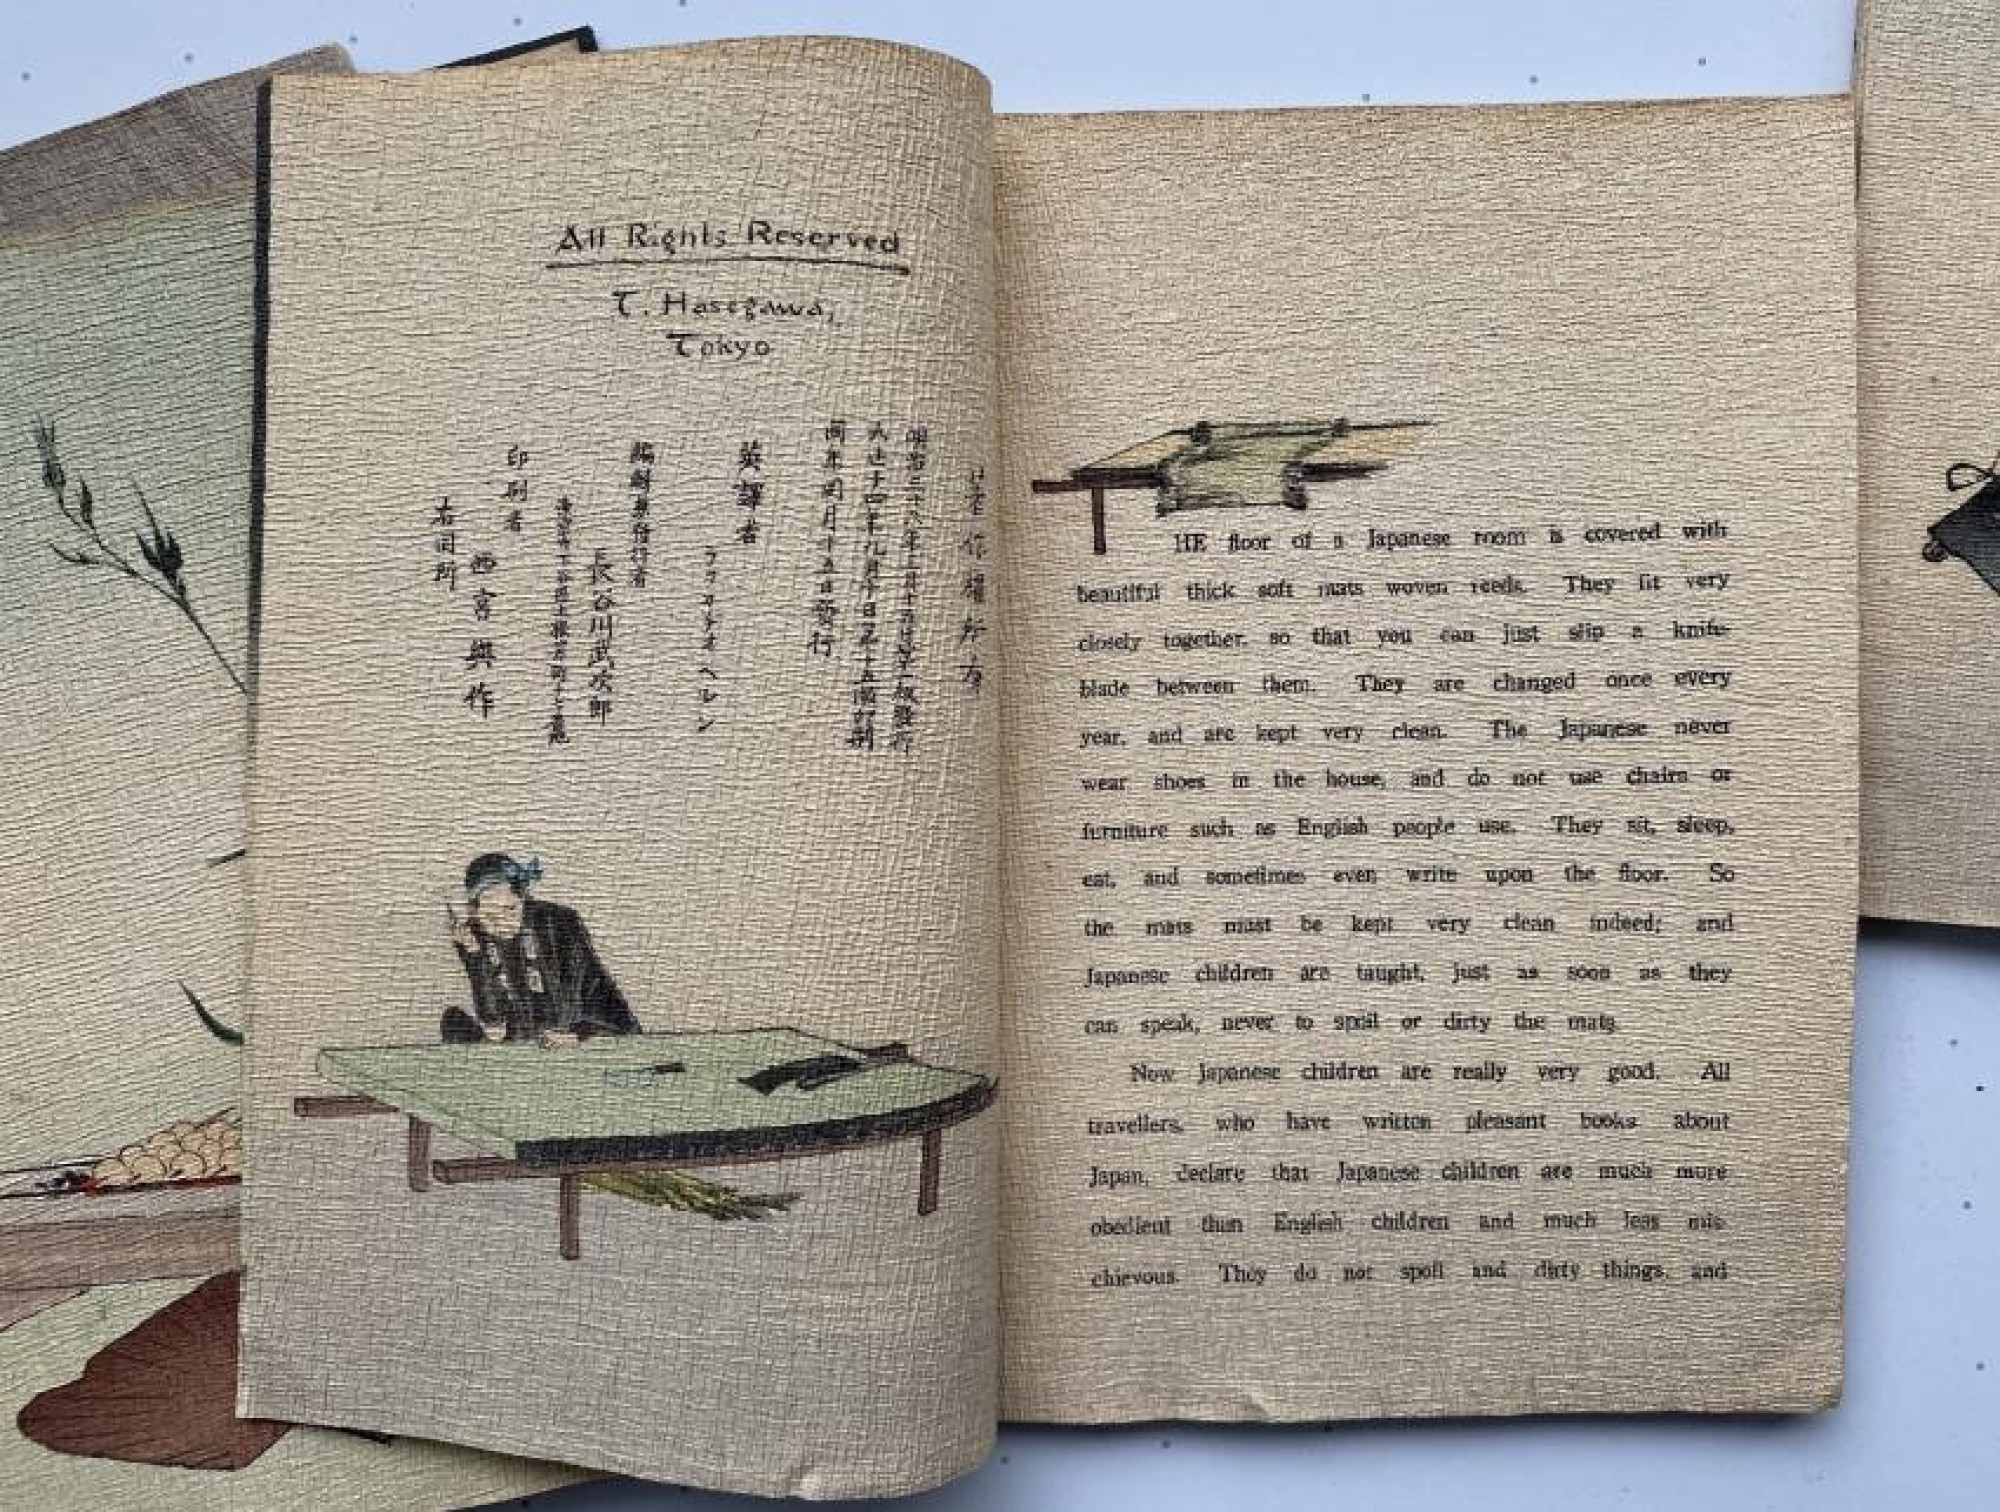 All Rights Reserved
T. Hasegawa,
Tokyo
作權所有
明治三十六年 月十五日第一版發行
大正十四年九月十日第十五版印刷
同年同月十五日發行
英譯者
ラフカヂオ ヘルン
編輯兼發行者
長谷川武次郎
下谷區上根岸町十七番地
印刷者
西宮與作
右同所
THE floor of a Japanese room is covered with
beautiful thick soft mats woven reeds. They fit very
closely together, so that you can just slip a knife-
blade between them. They are changed once every
year, and are kept very clean. The Japanese never
wear shoes in the house, and do not use chairs or
furniture such as English people use. They sit, sleep,
eat, and sometimes even write upon the floor. So
the mats must be kept very clean indeed; and
Japanese children are taught, just as soon as they
can speak, never to spoil or dirty the mats.
Now Japanese children are really very good. All
travellers, who have written pleasant books about
Japan, declare that Japanese children are much more
obedient than English children and much less mis-
chievous. They do not spoil and dirty things, and